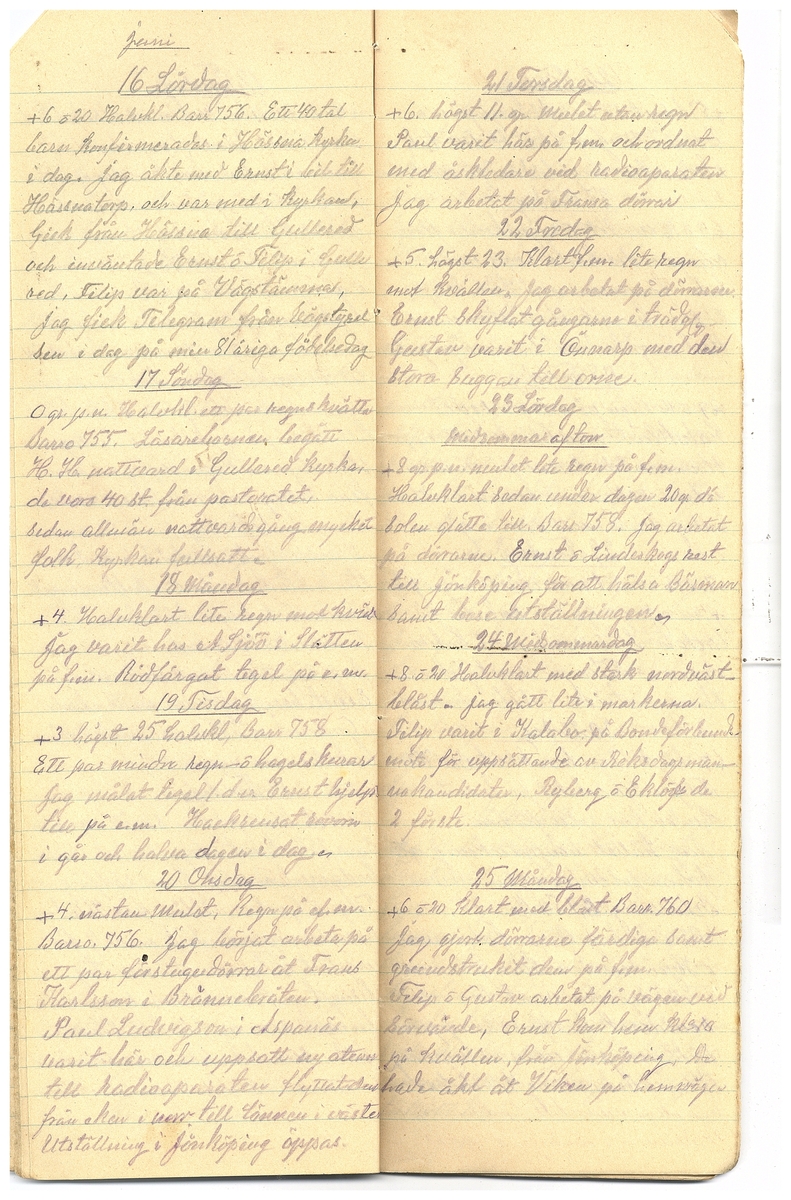 Juni
16 Lördag
+6 o 20 Halvkl. Barr 756. Ett 40 tal
barn konfirmerades i Hössna kyrka
i dag. Jag åkte med Ernst i bil till
Hössnatorp, och var med i kyrkan,
Gick från Hössna till Gullered
och inväntade Ernst o Filip i Gulle
red, Filip var på Vägstämma,
Jag fick Telegram från Vägstyrel
sen i dag på min 81åriga födelsedag
17 Söndag
0 gr. p.n. Halvkl. ett par regnskvätt
Barro 755. Läsarebarnen begått
H. H. nattvard i Gullered Kyrka,
de voro 40 st. från pastoratet,
sedan allmän nattvardsgång mycket
folk. Kyrkan fullsatt.
18 Måndag
+4. Halvklart lite regn mot kväll
Jag varit hos A Sjöö i Slätten
på f.m. Rödfärgat tegel på e.m.
19 Tisdag
+3 högst 25 halvkl, Barr 758
Ett par mindre regn- o hagelskurar
Jag målat tegel Ernst hjelp
till på e.m. Hackrensat
i går och halva dagen i dag
20 Onsdag
+4. nästan Mulet, Regn på ef.m.
Barro. 756. Jag börjat arbeta på
ett par förstugudörrar åt Frans
Karlsson i Brännebråten.
Paul Ludvigson i Aspanäs
varit här och uppsatt ny aten
till radioaparaten flyttat den
från eken i norr till lönnen i väster
Utställning i Jönköping öppas.
21 Torsdag
+6. högst 11. gr mulet utan regn
Paul varit här på f.m. och ordnat
med åskledare vid radioaparaten
Jag arbetat på Frans dörrar
22 Fredag
+5. högst 23. Klart f.m. lite regn
mot kvällen. Jag arbetat på dörrarne
Ernst skyflat gångarne i trädg.
Gustav varit i Önnarp med den
stora suggan till orne.
23 Lördag
Midsommarafton
+8 gr. p.n. mulet lite regn på f.m.
Halvklart sedan under dagen 20 gr. då
solen glätte till. Barr 758. Jag arbetat
på dörrarne. Ernst o Lindeskogs rest
till Jönköping för att hälsa Börman
samt bese utställningen
24 Midsommardag
+8 o 20 Halvklart med stark nordväst
blåst. jag gått lite i markerna.
Filip varit i Kalabo på Bondeförbunds
möte för uppsättande av Riksdagsman
nakandidater, Ryberg o Eklöfs de
2 förste.
25 Måndag
+6 o 20 Klart med blåst Barr. 760
Jag gjort dörrarne färdiga samt
grundstruket dem på f.m.
Filip o Gustav arbetat på vägen vid
Ernst kom hem
på kvällen, från Jönköping, De
hade åkt åt Viken på hemvägen